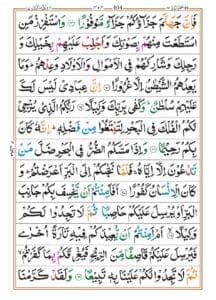 فَاِنَّ جَهَنَّمَ جَزَآؤُكُمْ جَزَآءً مَّوْفُوْرًا ۝ وَاسْتَفْزِزْ مَنِ
اسْتَطَعْتَ مِنْهُمْ بِصَوْتِكَ وَاَجْلِبْ عَلَيْهِمْ بِخَيْلِكَ وَ
رَجِلِكَ وَشَارِكْهُمْ فِي الْاَمْوَالِ وَالْاَوْلَادِ وَعِدْهُمْ ؕ وَمَا
يَعِدُهُمُ الشَّيْطٰنُ اِلَّا غُرُوْرًا ۝ اِنَّ عِبَادِيْ لَيْسَ لَكَ
عَلَيْهِمْ سُلْطٰنٌ ؕ وَكَفٰى بِرَبِّكَ وَكِيْلًا ۝ رَبُّكُمُ الَّذِيْ يُزْجِيْ
لَكُمُ الْفُلْكَ فِي الْبَحْرِ لِتَبْتَغُوْا مِنْ فَضْلِهٖ ؕ اِنَّهٗ كَانَ
بِكُمْ رَحِيْمًا ۝ وَاِذَا مَسَّكُمُ الضُّرُّ فِي الْبَحْرِ ضَلَّ مَنْ
تَدْعُوْنَ اِلَّآ اِيَّاهُ ۚ فَلَمَّا نَجّٰىكُمْ اِلَى الْبَرِّ اَعْرَضْتُمْ ؕ وَ
كَانَ الْاِنْسَانُ كَفُوْرًا ۝ اَفَاَمِنْتُمْ اَنْ يَّخْسِفَ بِكُمْ جَانِبَ
الْبَرِّ اَوْ يُرْسِلَ عَلَيْكُمْ حَاصِبًا ثُمَّ لَا تَجِدُوْا لَكُمْ
وَكِيْلًا ۝ اَمْ اَمِنْتُمْ اَنْ يُّعِيْدَكُمْ فِيْهِ تَارَةً اُخْرٰى
فَيُرْسِلَ عَلَيْكُمْ قَاصِفًا مِّنَ الرِّيْحِ فَيُغْرِقَكُمْ بِمَا كَفَرْتُمْ ۙ
ثُمَّ لَا تَجِدُوْا لَكُمْ عَلَيْنَا بِهٖ تَبِيْعًا ۝ وَلَقَدْ كَرَّمْنَا